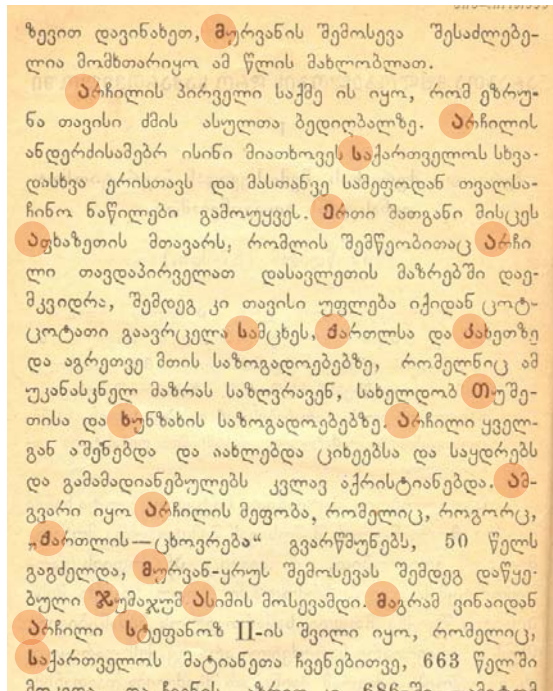 ზევით დავინახეთ, მურვანის შემოსევა შესაძლებე-
ლია მომხთარიყო ამ წლის მახლობლათ.
არჩილის პირველი საქმე ის იყო, რომ ეზრუ-
ნა თავისი ძმის ასულთა ბედიღბალზე. არჩილის
ანდერძისამებრ ისინი მიათხოვეს საქართველოს სხვა-
დასხვა ერისთავს და მასთანვე სამეფოდან თვალსა-
ჩინო ნაწილები გამოუყვეს. ერთი მათგანი მისცეს
აფხაზეთის მთავარს, რომლის შემწეობითაც არჩი
ლი თავდაპირველათ დასავლეთის მაზრებში დაე-
მკვიდრა, შემდეგ კი თავისი უფლება იქიდან ცოტ-
ცოტათი გაავრცელა სამცხეს, ქართლსა და კახეთზე
და აგრეთვე მთის საზოგადოებებზე, რომელნიც ამ
უკანასკნელ მაზრას საზღვრავენ, სახელდობ თუშე-
თისა და ხუნზახის საზოგადოებებზე. არჩილი ყველ-
გან აშენებდა და აახლებდა ციხეებსა და საყდრებს
და გამამადიანებულებს კვლავ აქრისტიანებდა. ამ-
გვარი იყო არჩილის მეფობა, რომელიც, როგორც,
„ქართლის—ცხოვრება“ გვარწმუნებს, 50 წელს
გაგძელდა, მურვან-ყრუს შემოსევას შემდეგ დაწყე-
ბული ჯუმაჯუმ ასიმის მოსევამდი. მაგრამ ვინაიდან
არჩილი სტეფანოზ II-ის შვილი იყო, რომელიც,
საქართველოს მატიანეთა ჩვენებითვე, 663 წელში